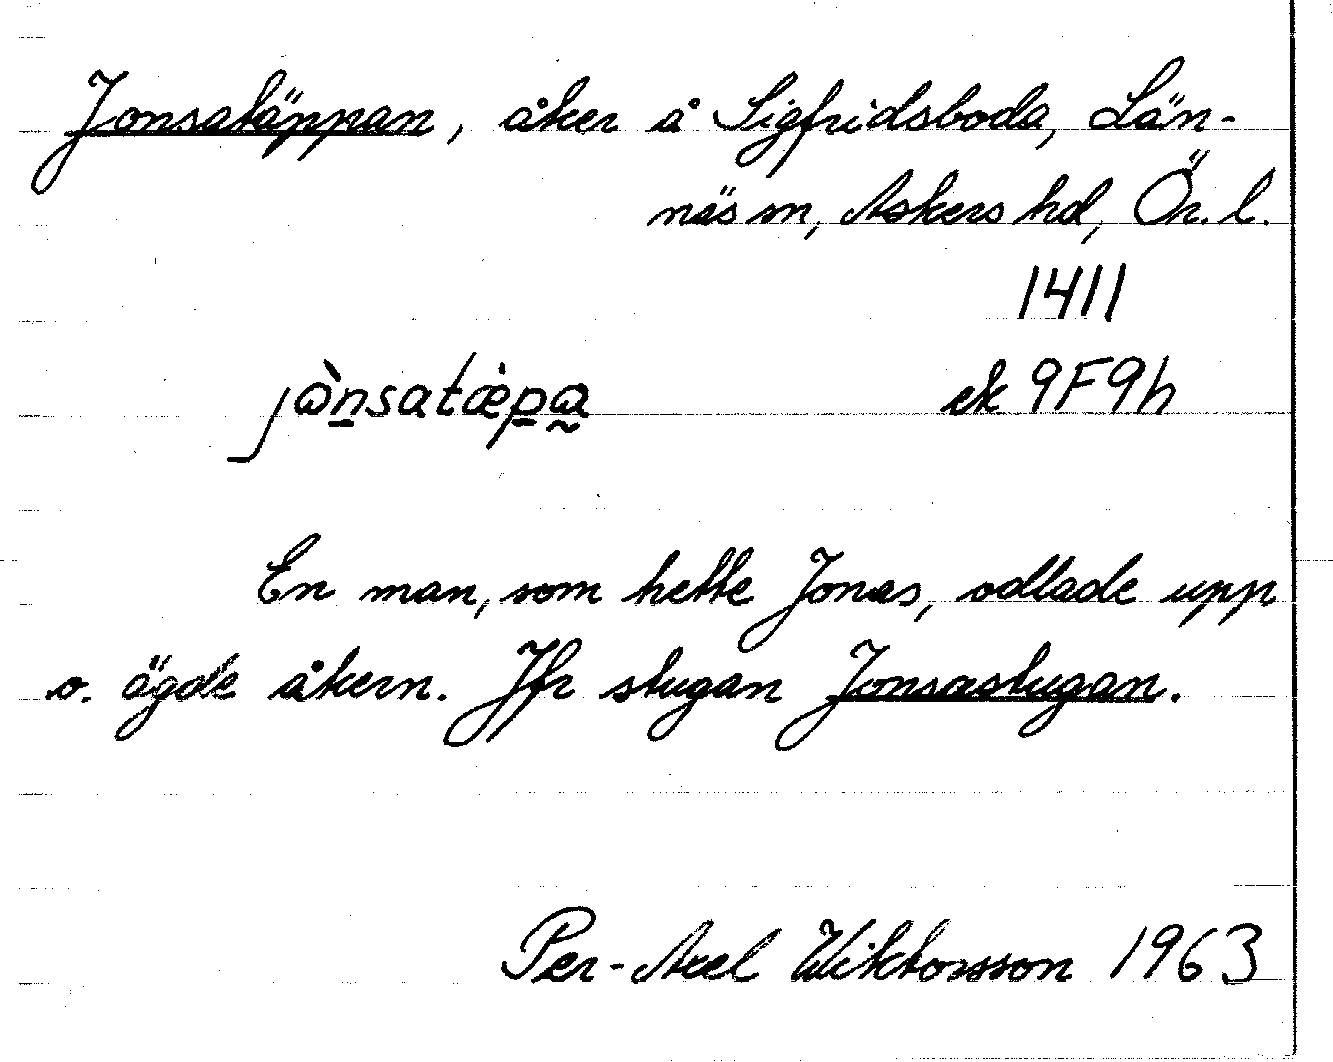 Jonsatäppan, åker å Sigfridsboda, Län-
näs sn, Askers hd, Ör. l.
1411
jɷ̀nsatæ̀pa̰ ek 9F9h
En man, som hette Jonas, odlade upp
o. ägde åkern. Jfr stugan Jonsastugan.
Per-Axel Wiktorsson 1963